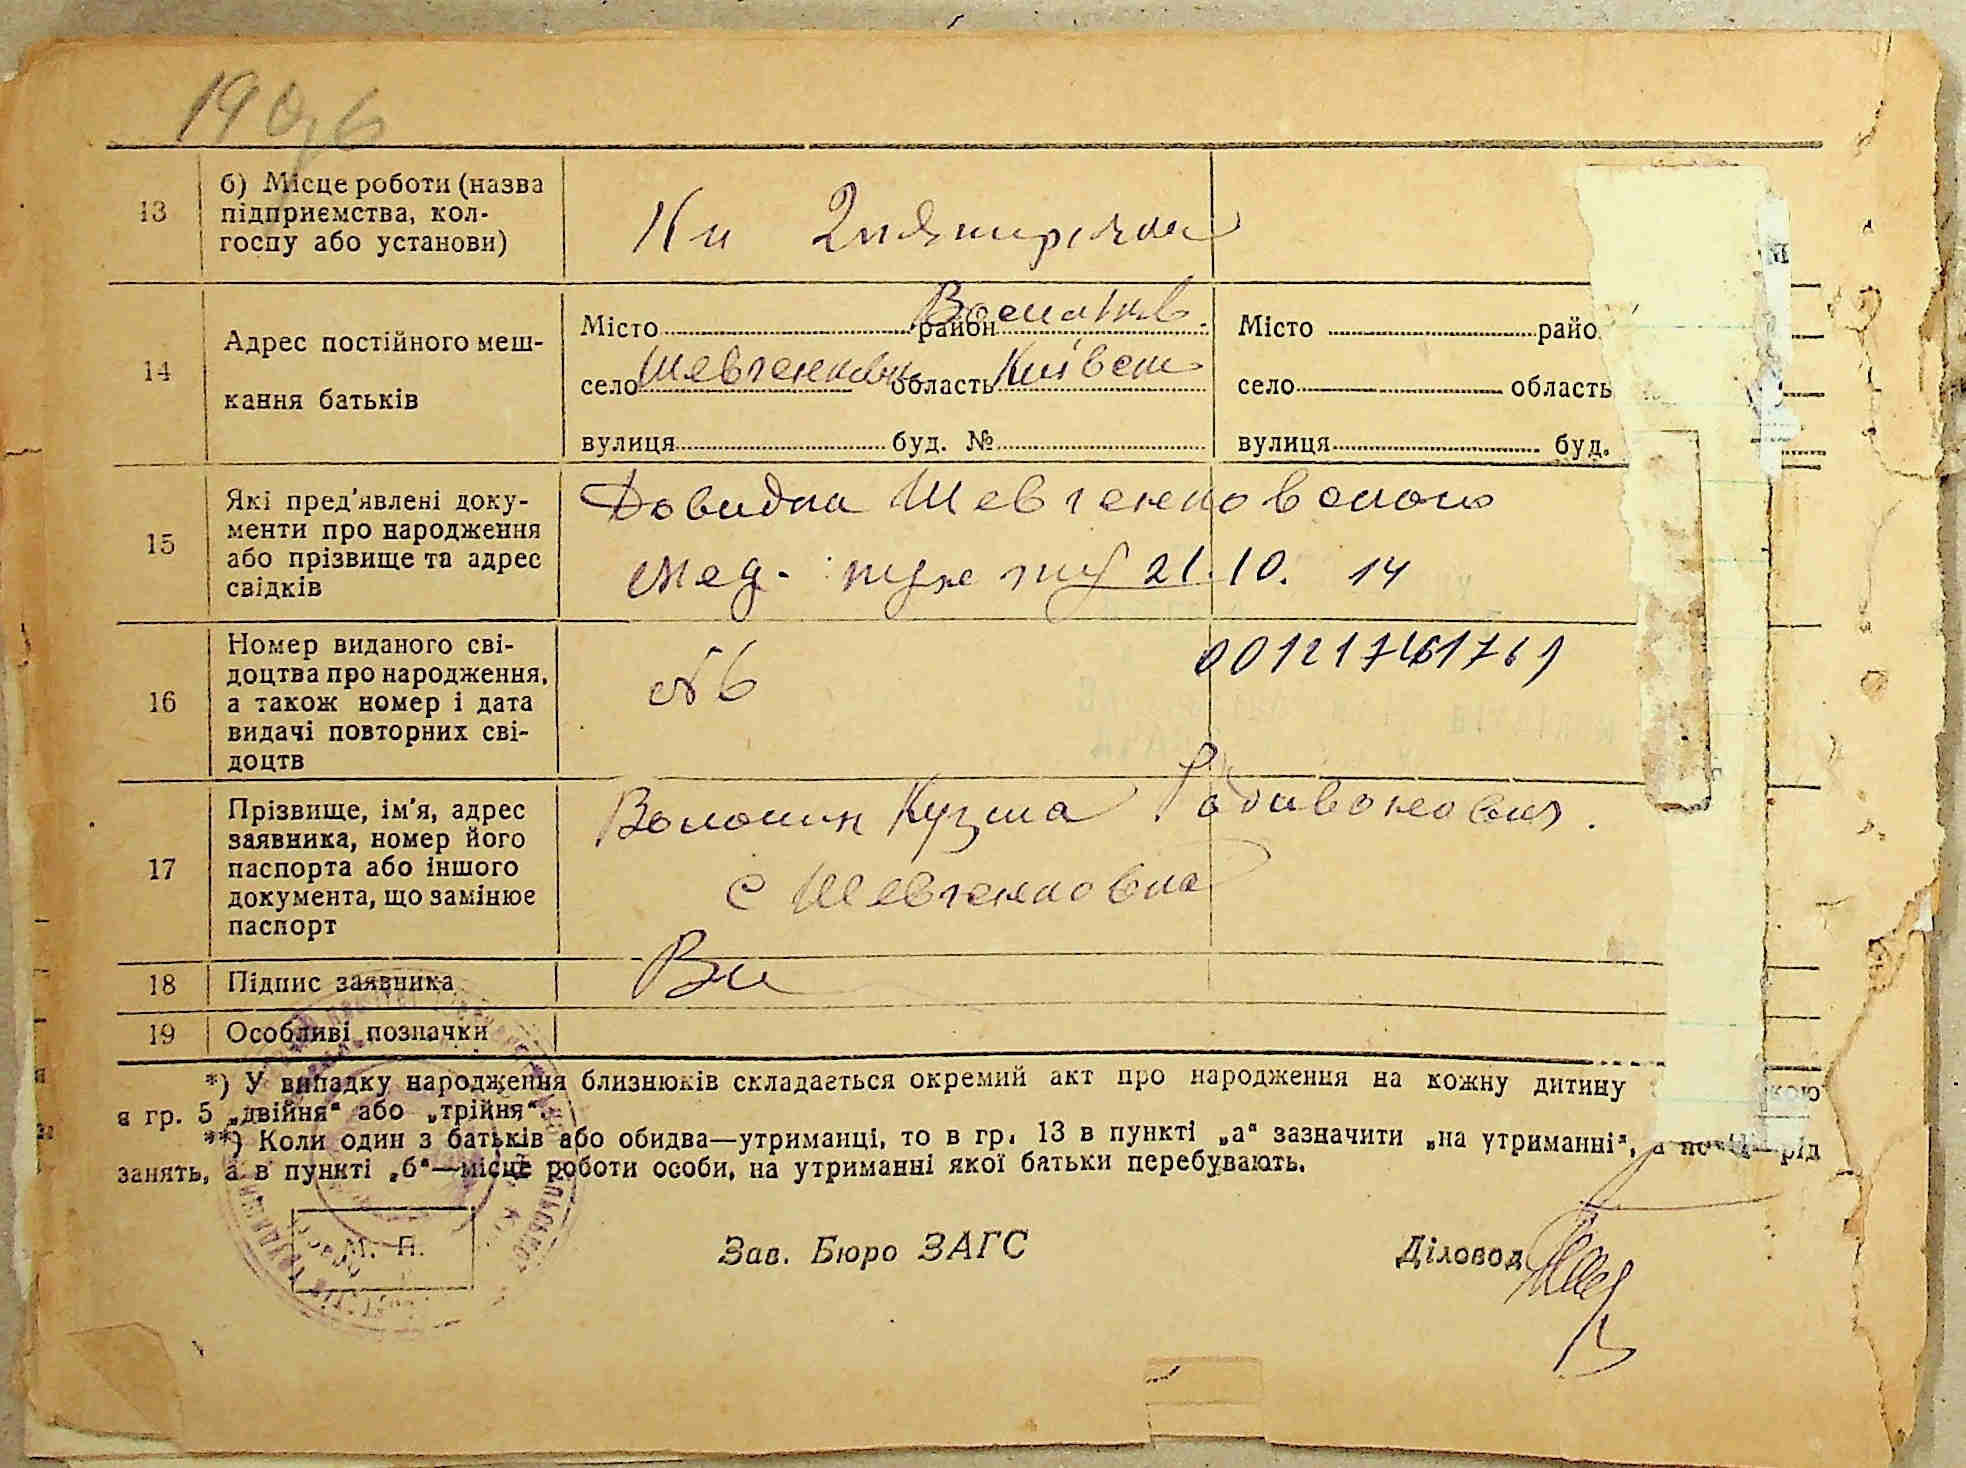 13
б) Місце роботи (назва
підприємства, кол-
госпу або установи)
14
Адрес постійного меш-
кання батьків
Місто район
село Шевченкова область Київськ
вулиця буд. №
Місто райо
село область
вулиця буд.
15
Які пред'явлені доку-
менти про народження
або прізвище та адрес
свідків
Довидка Шевченковского
мед. пункту 21.10. 14
16
Номер виданого сві-
доцтва про народження,
а також номер і дата
видачі повторних сві-
доцтв
№ 6
17
Прізвище, ім'я, адрес
заявника, номер його
паспорта або іншого
документа, що замінює
паспорт
Волошин Кузма Родивонович.
с Шевченковка
18
Підпис заявника
19
Особливі позначки
*) У випадку народження близнюків складається окремий акт про народження на кожну дитину кою
в гр. 5 „двійня" або „трійня".
**) Коли один з батьків або обидва—утриманці, то в гр. 13 в пункті „а" зазначити „на утриманні", рід
занять, а в пункті „б"—місце роботи особи, на утриманні якої батьки перебувають.
М. П.
Зав. Бюро ЗАГС
Діловод